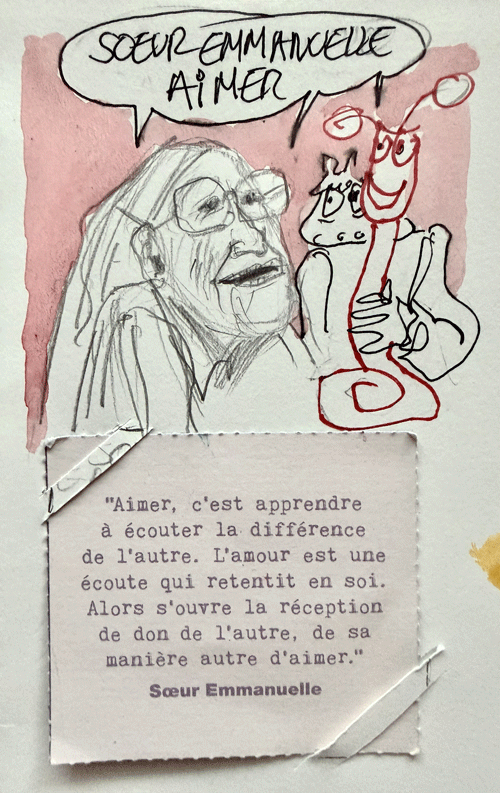 SOEUR EMMANUELLE
AIMER
"Aimer, c'est apprendre
à écouter la différence
de l'autre. L'amour est une
écoute qui retentit en soi.
Alors s'ouvre la réception
de don de l'autre, de sa
manière autre d'aimer."
Sœur Emmanuelle